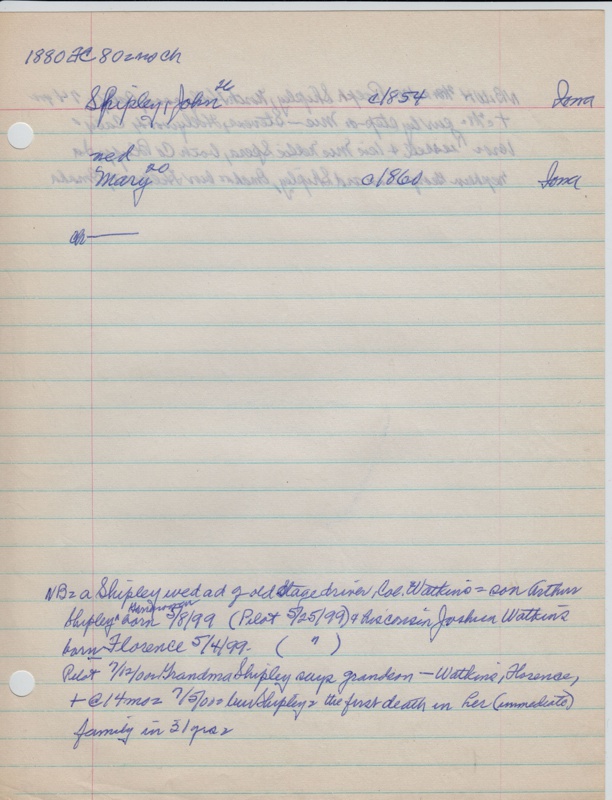 1880 FC 80 = no ch
Shipley, John 26 c1854 Iowa
wed
Mary 20 c1860 Iowa
ch —
NB = a Shipley wed a d g old stage driver, Col. Watkins = son Arthur
Shipley born 5/8/99 (Pilot 5/25/99) & Joshua Watkins
born Florence 5/4/99. ( " )
Pilot 7/12/00 = Grandma Shipley says grandson — Watkins, Florence,
+ @ 14 mo = 7/5/00 = Shipley = the first death in her (immediate)
family in 31 yrs =